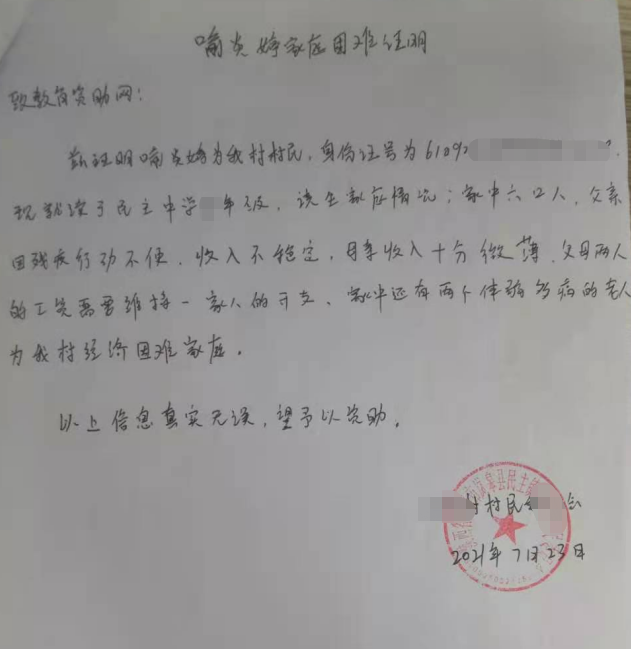 喻炎婷家庭困难证明
致教育资助网：
兹证明喻炎婷为我村村民，身份证号为6109
现就读于民主中学 年级，该生家庭情况：家中六口人，父亲
因残疾行动不便，收入不稳定，母亲收入十分微薄，父母两人
的工资需要维持一家人的开支，家中还有两个体弱多病的老人
为我村经济困难家庭。
以上信息真实无误，望予以资助。
村民
2021年7月23日
县民主